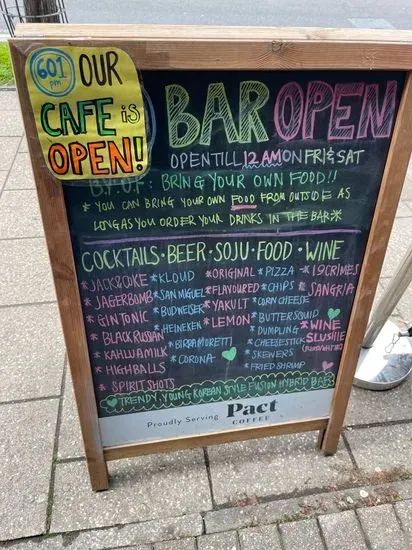 601
pm
OUR
CAFE is
OPEN!
BAR OPEN
OPEN TILL 12AM ON FRI & SAT
B.Y.O.F : BRING YOUR OWN FOOD!!
* YOU CAN BRING YOUR OWN FOOD FROM OUTSIDE AS
LONG AS YOU ORDER YOUR DRINKS IN THE BAR *
COCKTAILS · BEER · SOJU · FOOD · WINE
* JACK&COKE
* JAGERBOMB
* GIN TONIC
* BLACK RUSSIAN
* KAHLUA MILK
* HIGHBALLS
* SPIRIT SHOTS
* KLOUD
* SAN MIGUEL
* BUDWEISER
* HEINEKEN
* BIRRA MORETTI
* CORONA
* ORIGINAL
* FLAVOURED
* YAKULT
* LEMON
* PIZZA
* CHIPS
* CORN CHEESE
* BUTTER SQUID
* DUMPLING
* CHEESE STICK
* SKEWERS
* FRIED SHRIMP
* 19 CRIMES
* SANGRIA
* WINE
SLUSHIE
(RED/WHITE)
* TRENDY. YOUNG KOREAN STYLE FUSION HYBRID BAR
Proudly Serving Pact
COFFEE